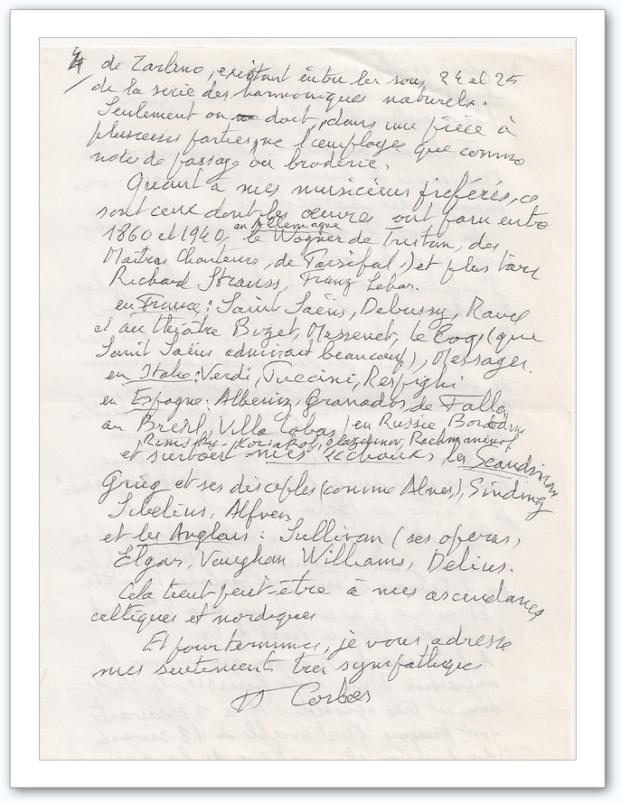 4/ de Zarlino, existant entre les sons 24 et 25
de la série des harmoniques naturels.
Seulement on doit, dans une pièce à
plusieurs parties, ne l'employer que comme
note de passage ou broderie.
Quant à mes musiciens préférés, ce
sont ceux dont les œuvres ont paru entre
1860 et 1940, en Allemagne le Wagner de Tristan, des
Maîtres Chanteurs, de Parsifal,) et plus tard
Richard Strauss, Franz Lehar.
en France: Saint Saëns, Debussy, Ravel
et au théâtre Bizet, Massenet, le Coq (que
Saint Saëns admirait beaucoup), Messager.
en Italie: Verdi, Puccini, Respighi
en Espagne: Albeniz, Granados, de Falla,
au Brésil, Villa Lobas / en Russie Borodine
Rimsky-Korsakof, Glazounov, Rachmaninof
et surtout mes "chouchoux", les Scandinaves
Grieg et ses disciples (comme Alnes), Sinding
Sibelius, Alfven
et les Anglais: Sullivan (ses operas,
Elgar, Vaughan Williams, Delius.
Cela tient peut-être à mes ascendances
celtiques et nordiques
Et pour terminer, je vous adresse
mes sentiments très sympathiques
Corbes